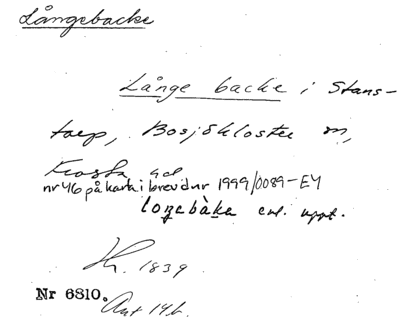 Långebacke
Långe backe i Stans-
torp, Bosjökloster sn,
Frosta hd
nr 46 på karta i brev dnr 1999/0089-EY
loŋebàka enl. uppt.
1839
Nr 6810.